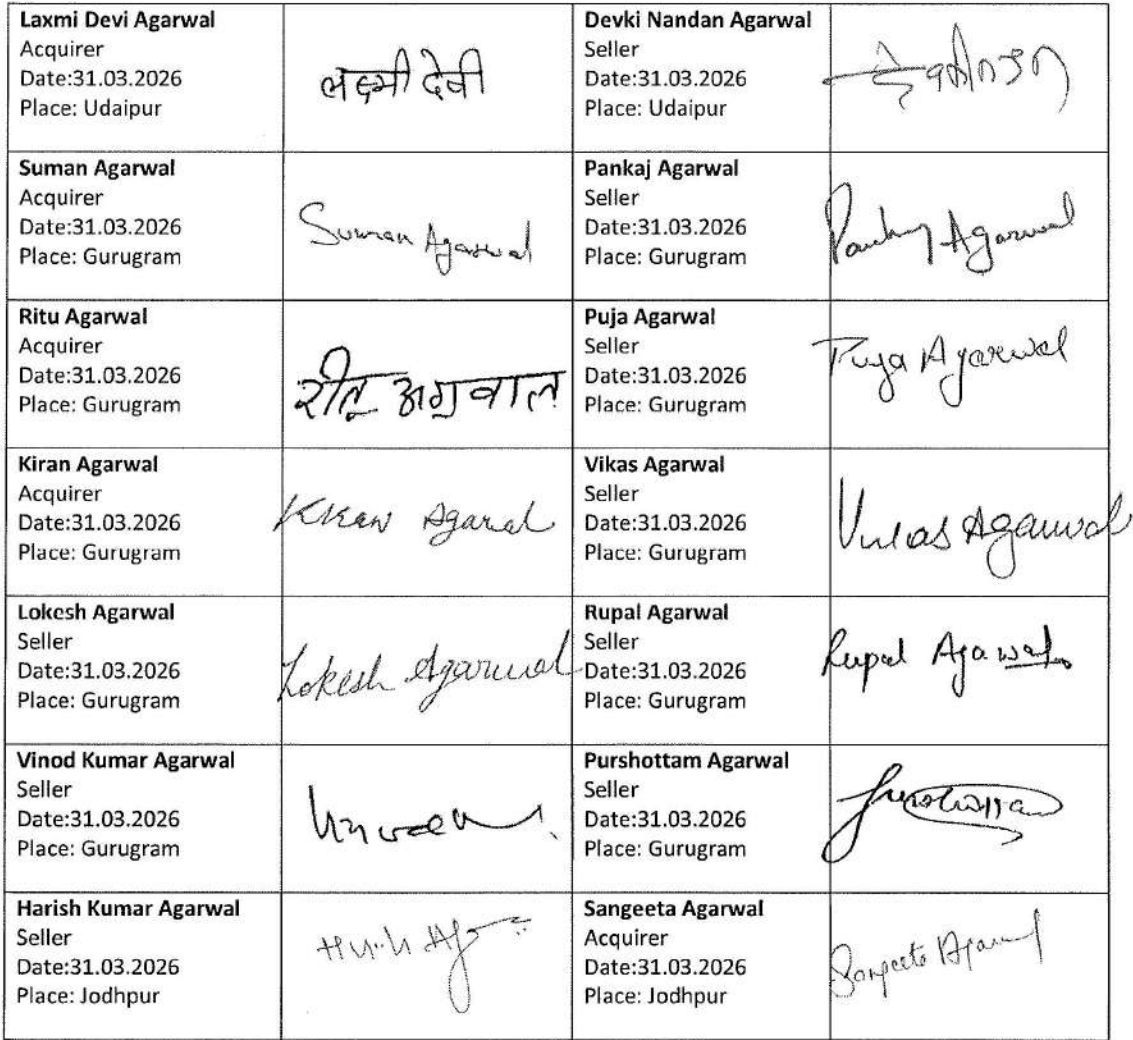 Laxmi Devi Agarwal
Acquirer
Date:31.03.2026
Place: Udaipur
लक्ष्मी देवी
Devki Nandan Agarwal
Seller
Date:31.03.2026
Place: Udaipur
Suman Agarwal
Acquirer
Date:31.03.2026
Place: Gurugram
Suman Agarwal
Pankaj Agarwal
Seller
Date:31.03.2026
Place: Gurugram
Pankaj Agarwal
Ritu Agarwal
Acquirer
Date:31.03.2026
Place: Gurugram
रीतू अग्रवाल
Puja Agarwal
Seller
Date:31.03.2026
Place: Gurugram
Puja Agarwal
Kiran Agarwal
Acquirer
Date:31.03.2026
Place: Gurugram
Kiran Agarwal
Vikas Agarwal
Seller
Date:31.03.2026
Place: Gurugram
Vikas Agarwal
Lokesh Agarwal
Seller
Date:31.03.2026
Place: Gurugram
Lokesh Agarwal
Rupal Agarwal
Seller
Date:31.03.2026
Place: Gurugram
Rupal Agarwal
Vinod Kumar Agarwal
Seller
Date:31.03.2026
Place: Gurugram
Purshottam Agarwal
Seller
Date:31.03.2026
Place: Gurugram
Harish Kumar Agarwal
Seller
Date:31.03.2026
Place: Jodhpur
Sangeeta Agarwal
Acquirer
Date:31.03.2026
Place: Jodhpur
Sangeeta Agarwal